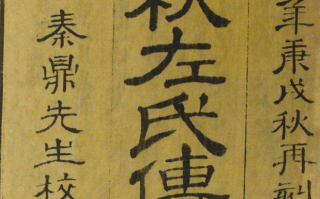 年庚戌秋再刻
秋左氏傳
秦鼎先生校